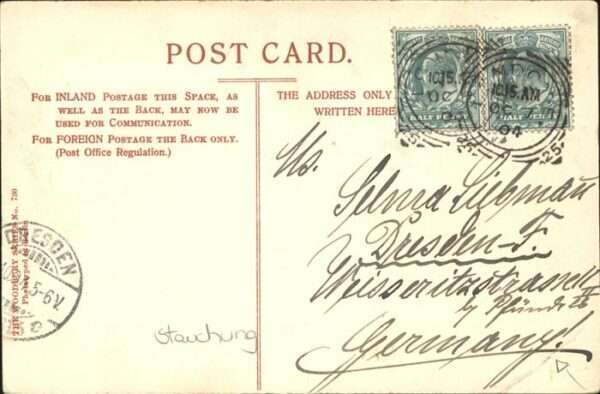 POST CARD.
FOR INLAND POSTAGE THIS SPACE, AS
WELL AS THE BACK, MAY NOW BE
USED FOR COMMUNICATION.
FOR FOREIGN POSTAGE THE BACK ONLY.
(Post Office Regulation.)
THE ADDRESS ONLY
WRITTEN HERE
HALF PENNY
HALF PENNY
10.15.AM
OC
04
25
THE WOODBURY SERIES No. 730
DRESDEN
5-6V.
Selma Liebmau
Dresden-F.
Weisseritzstrasse
by Pfünd
Germany!
Stauchung